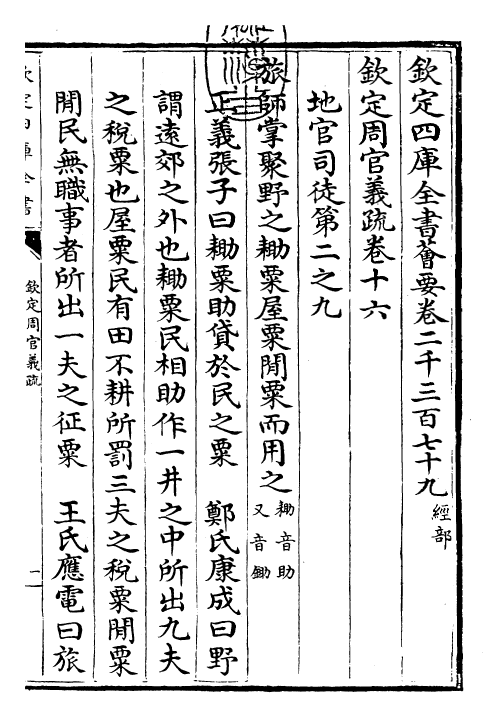 欽定四庫全書薈要卷二千三百七十九經部
欽定周官義疏卷十六
地官司徒第二之九
旅師掌聚野之耡粟屋粟閒粟而用之耡音助又音鋤
正義張子曰耡粟助貸於民之粟　鄭氏康成曰野
謂遠郊之外也耡粟民相助作一井之中所出九夫
之稅粟也屋粟民有田不耕所罰三夫之稅粟閒粟
閒民無職事者所出一夫之征粟　王氏應電曰旅
欽定四庫全書
欽定周官義疏